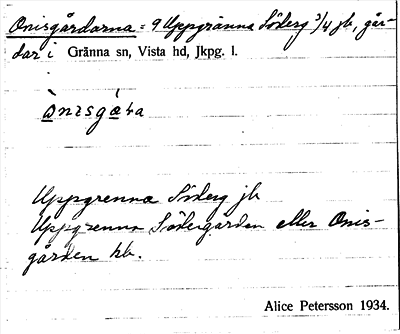 Onisgårdarna = 9 Uppgränna Söderg 3/4 jb, går-
dar i Gränna sn, Vista hd, Jkpg. l.
Uppgrenna Söderg jb
Uppgrenna Södergården eller Onis-
gården hb.
Alice Petersson 1934.